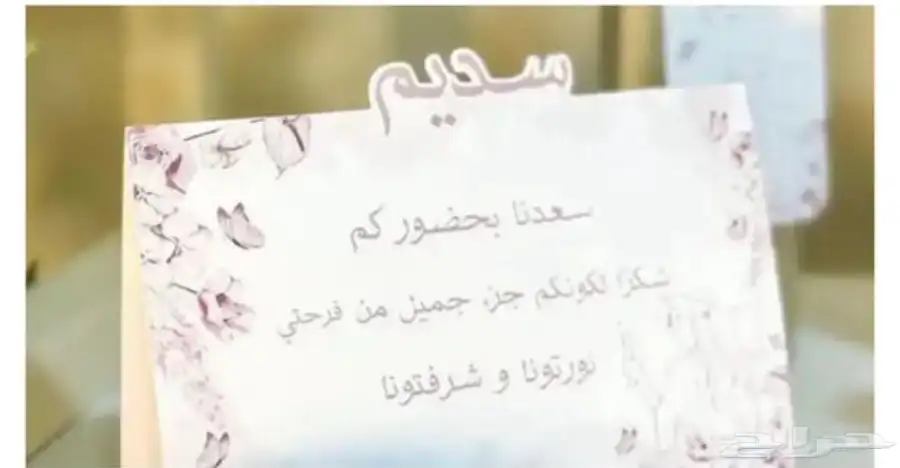 سديم
سعدنا بحضوركم
شكرًا لكونكم جزء جميل من فرحتي
نورتونا و شرفتونا
حراج